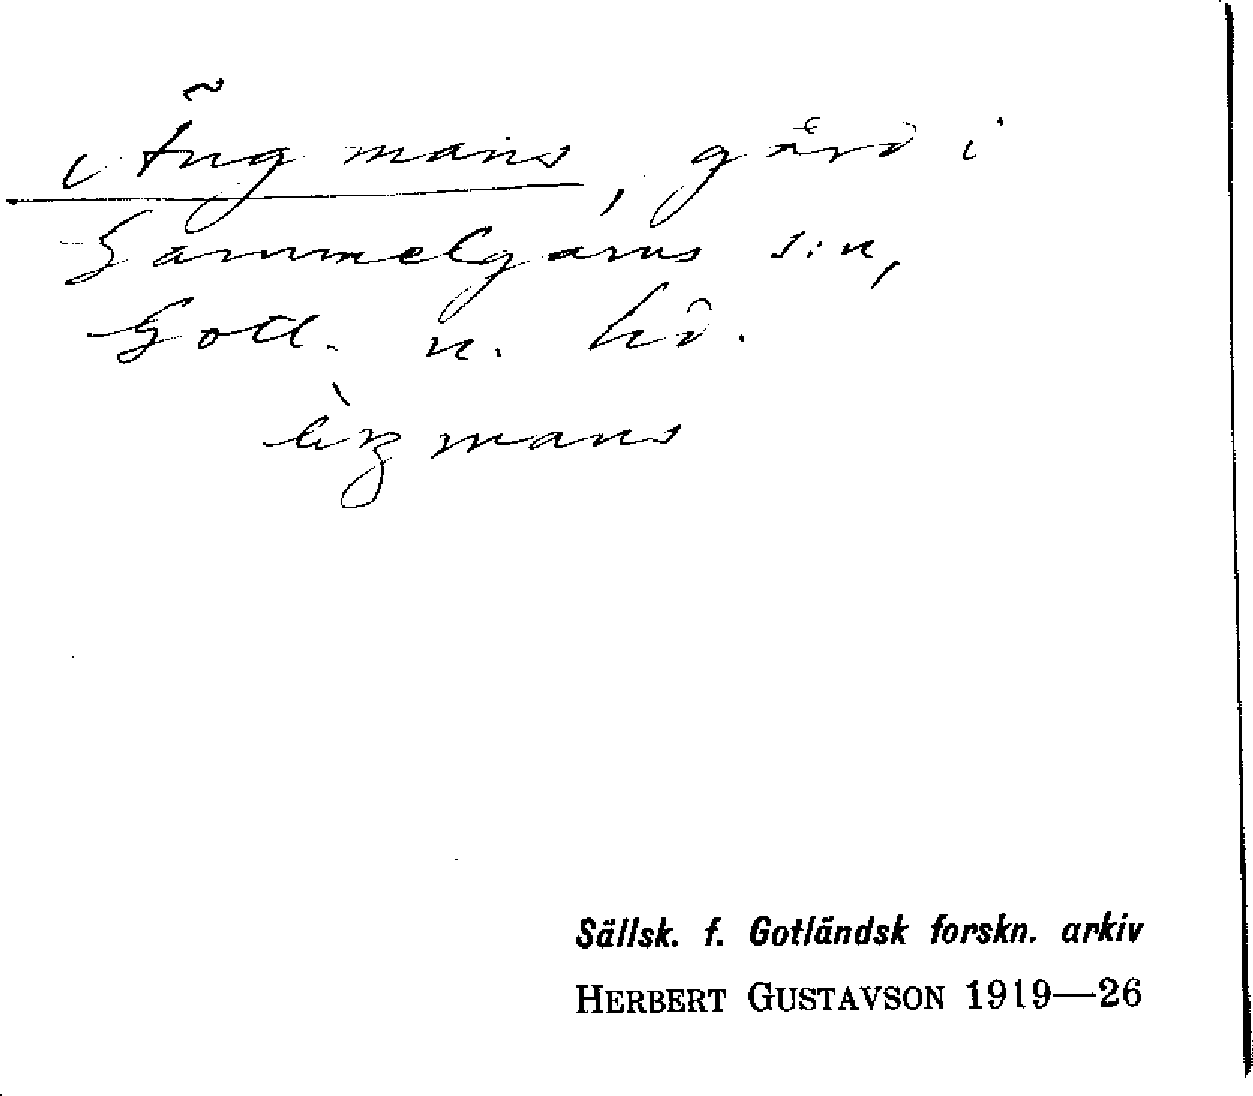 Ängmans, gård i
Gammelgarns s:n,
Gotl. n. hd.
mans
Sällsk. f. Gotländsk forskn. arkiv
HERBERT GUSTAVSON 1919—26